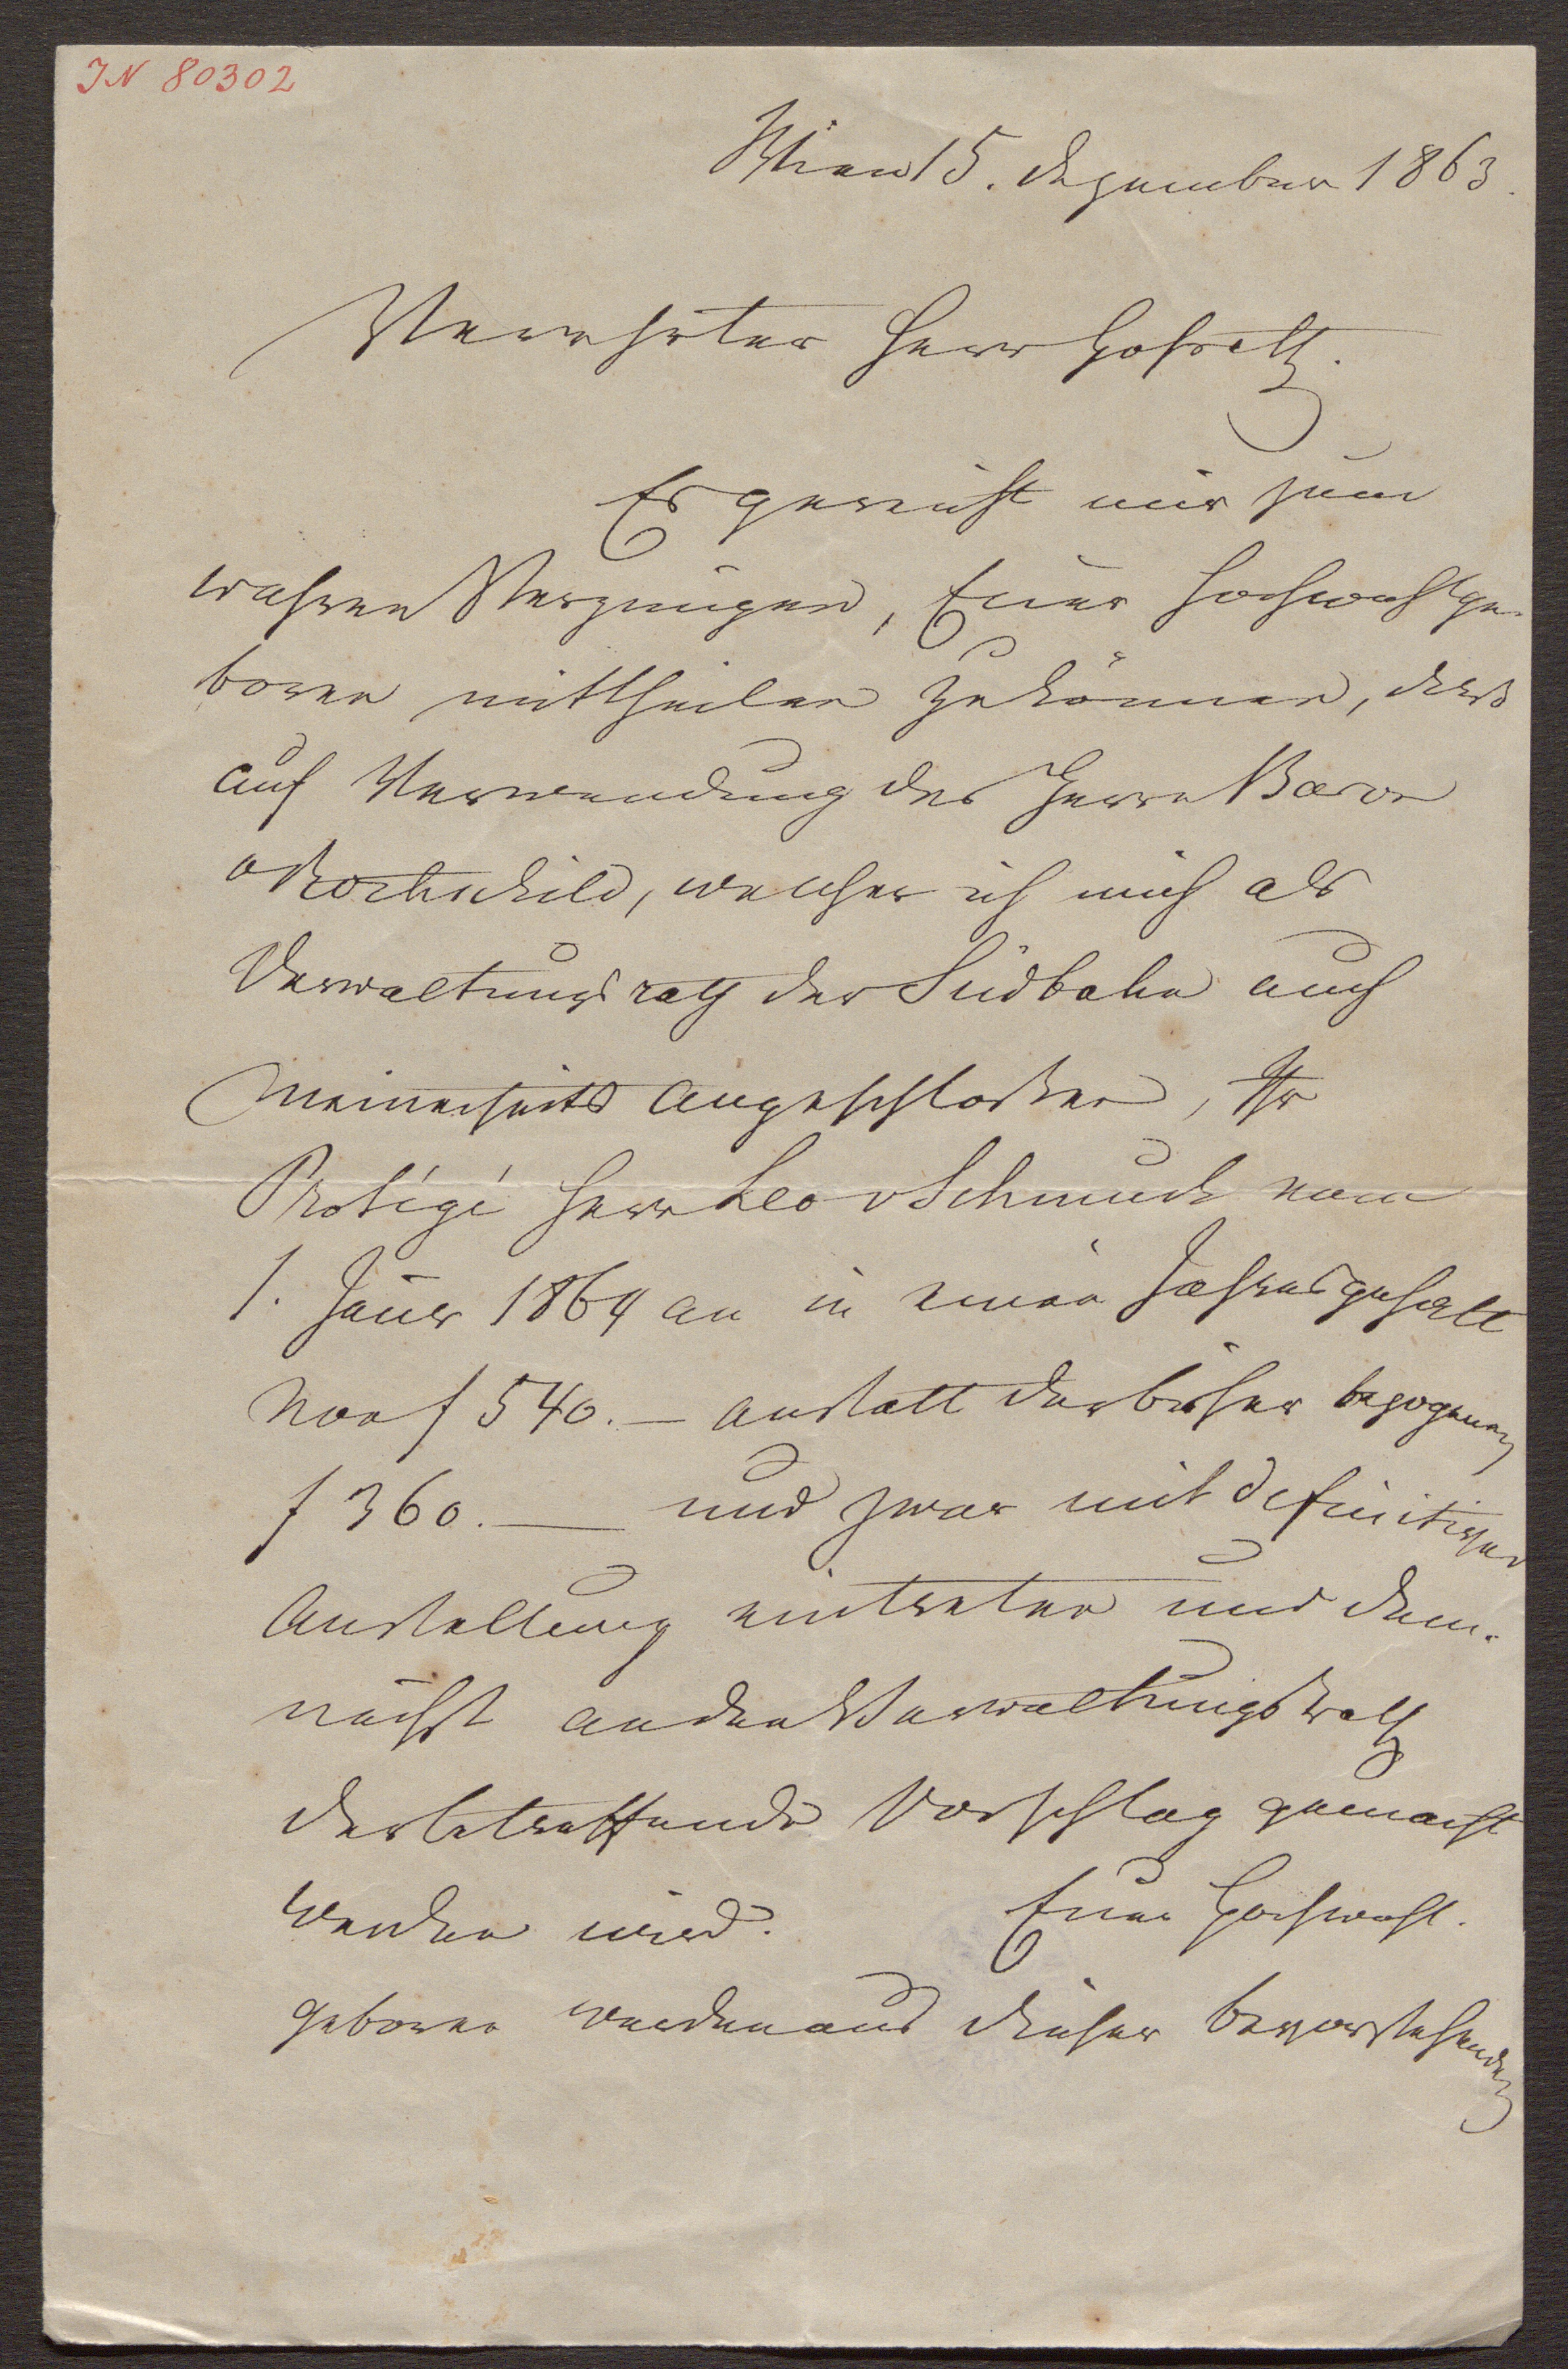 IN 80302
Wien 15. Dezember 1863.
Verehrter Herr Hofrath.
Es gereicht mir zum
wahren Vergnügen, Euer Hochwohlge-
boren mittheilen zu können, daß
auf Verwendung des Herrn Baron
Rothschild, welcher ich mich als
Verwaltungsrath der Südbahn auch
meinerseits angeschloßen, Ihr
Protégé Herr Leo v Schmuck vom
1. Jäner 1864 an in einen Jahresgehalt
von f 540.— anstatt der bisher bezogenen
f 360.— und zwar mit definitiver
Anstellung eintreten und dem-
nächst an den Verwaltungsrath
der betreffende Vorschlag gemacht
werden wird. Euer Hochwohl-
geboren werden aus dieser bevorstehenden